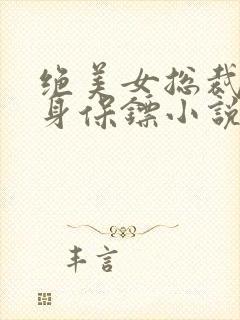 绝美女总裁
身保镖小説
丰言